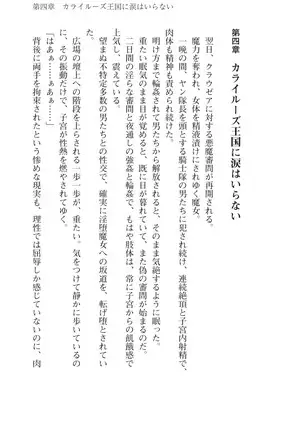 第四章　カライルーズ王国に涙はいらない
第四章　カライルーズ王国に涙はいらない
翌日、クラウゼアに対する悪魔審問が再開される。
魔力を奪われ、女体を精液漬けにされゆく魔女。
一晩の間、ヤン隊長を頭とする騎士隊の男たちに犯され続け、連続絶頂と子宮内射精で、
肉体も精神も責められ続けた。
明け方まで輪姦されて男たちから解放されると、そのまま気絶するように眠った。
重たい眠気のまま目が覚めると、既に日が暮れていて、また偽の審問が始まるのだ。
二日目の淫らな審問と夜通しの強姦と輪姦で、もはや肢体は、常に子宮からの飢餓感で
上気し、震えている。
望まぬ不特定多数の男たちとの性交で、確実に淫堕魔女への坂道を、転げ堕とされてい
る。
広場の壇上への階段を上らされる一歩一歩が、重たい。気をつけて静かに歩いているの
に、その振動だけで、子宮が性熱を燃やされてゆく。
「はあぁ……はぁぁ……」
背後に両手を拘束されたという惨めな現実も、理性では屈辱しか感じていないのに、肉